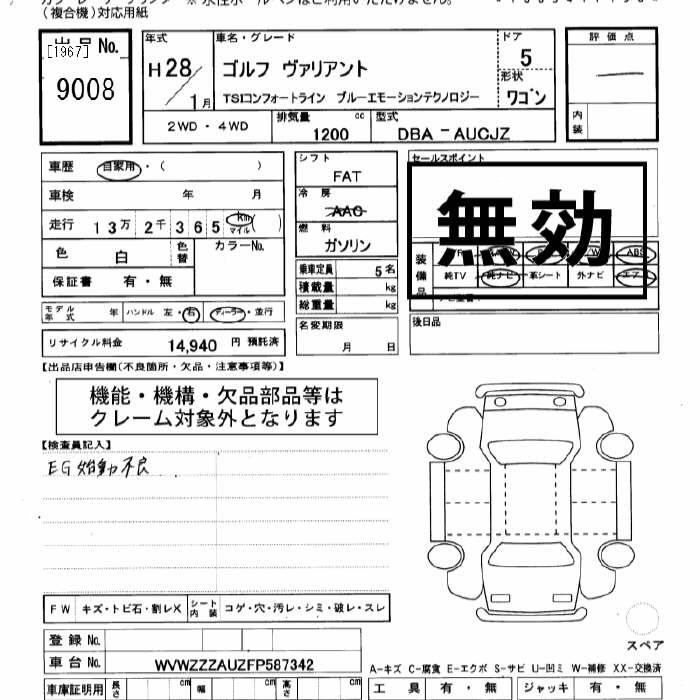 （複合機）対応用紙
出品No.
[1967]
9008
年式
H28/1月
車名・グレード
ゴルフ ヴァリアント
TSIコンフォートライン ブルーエモーションテクノロジー
ドア
5
形状
ワゴン
2WD・4WD
排気量
1200 cc
型式
DBA－AUCJZ
評価点
内装
車歴 自家用・（ ）
車検 年 月
走行 13万2千365 km マイル ( )
色 白
色替
カラーNo.
保証書 有・無
モデル年式 年
ハンドル 左・右
ディーラー・並行
リサイクル料金 14,940 円 預託済
シフト
FAT
冷房
AAC
燃料
ガソリン
乗車定員 5名
積載量 kg
総重量 kg
名変期限
月 日
セールスポイント
無効
装備品
ABS
純TV 純ナビ 革シート 外ナビ エアB
後日品
【出品店申告欄(不良箇所・欠品・注意事項等)】
機能・機構・欠品部品等は
クレーム対象外となります
【検査員記入】
EG始動不良
FW キズ・トビ石・割レX
シート内装 コゲ・穴・汚レ・シミ・破レ・スレ
登録No.
車台No. WVWZZZAUZFP587342
車庫証明用 長さ cm 幅 cm 高さ cm
スペア
A-キズ C-腐食 E-エクボ S-サビ U-凹ミ W-補修 XX-交換済
工具 有・無 ジャッキ 有・無